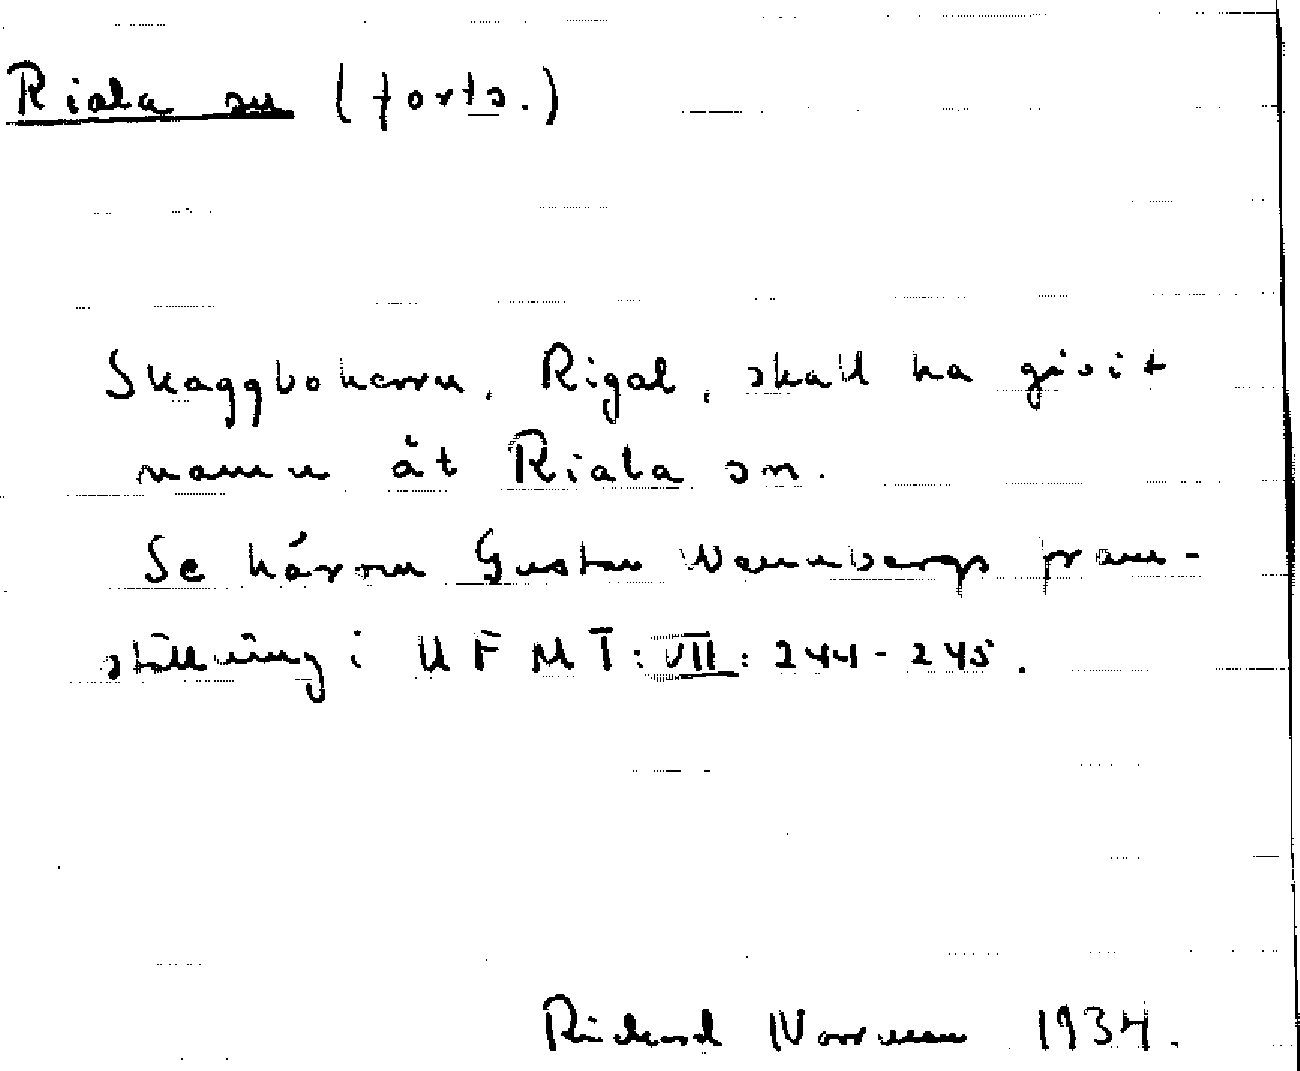 Riala sn (forts.)
Skaggboherrn, Rigal, skall ha givit
namn åt Riala sn.
Se härom Gustav Wennbergs fram-
ställning i UFMT: VII: 244-245.
Rickard Norrman 1934.